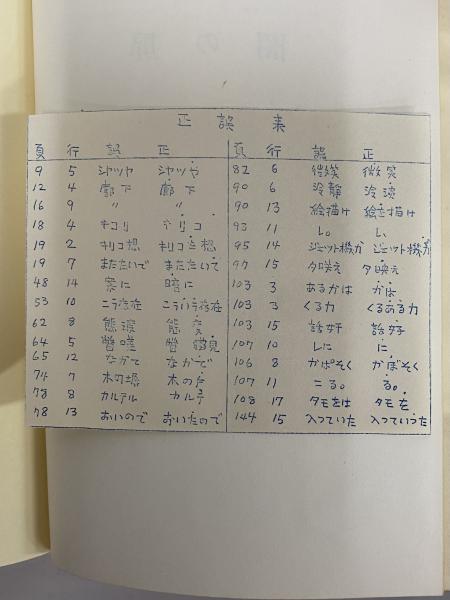 正 誤 表
頁 行 誤 正
9 5 シヤツヤ シャツや
12 4 廓下 廊下
16 9 〃 〃
18 4 キコリ キリコ
19 2 キリコ想 キリコを想
19 7 まだたいで まだたいて
48 14 案に 暗に
53 10 ニラ存在
62 8 態
64 5
65 12 なかて なかで
74 7 木の 木の戸
78 8 カルテル
78 13 おいので おいたので
頁 行 誤 正
82 6 微笑
90 6 冷静
90 13 絵描け 絵を描け
93 11 し。 い。
95 14 ジェット機か ジェット機が
97 15 夕映え
103 3 あるかは かは
103 3 くる力 くるある力
103 15
107 10 しに に
106 8 かぱそく かぼそく
107 11 こる。 る。
108 17 タモをは タモを
144 15 入っていた 入っていった